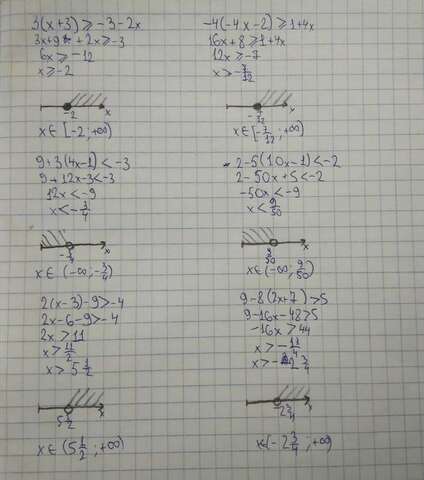 3(x+3) ≥ -3-2x
3x+9 + 2x ≥ -3
6x ≥ -12
x ≥ -2
-2 x
x ∈ [-2; +∞)
-4(-4x-2) ≥ 1+4x
16x+8 ≥ 1+4x
12x ≥ -7
x > -7/12
-7/12 x
x ∈ [-7/12; +∞)
9+3(4x-1) < -3
9+12x-3 < -3
12x < -9
x < -3/4
-3/4 x
x ∈ (-∞; -3/4)
2-5(10x-1) < -2
2-50x+5 < -2
-50x < -9
x < 9/50
9/50 x
x ∈ (-∞; 9/50)
2(x-3)-9 > -4
2x-6-9 > -4
2x > 11
x > 11/2
x > 5 1/2
5 1/2 x
x ∈ (5 1/2; +∞)
9-8(2x+7) > 5
9-16x-48 > 5
-16x > 44
x > -11/4
x > -2 3/4
-2 3/4 x
x ∈ (-2 3/4; +∞)